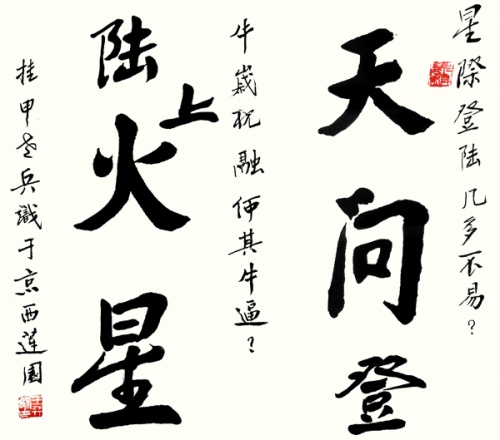 星際登陆几多不易？
天问登
牛嵗祝融何其牛逼？
陆上火星
挂甲老兵識于京西莲園